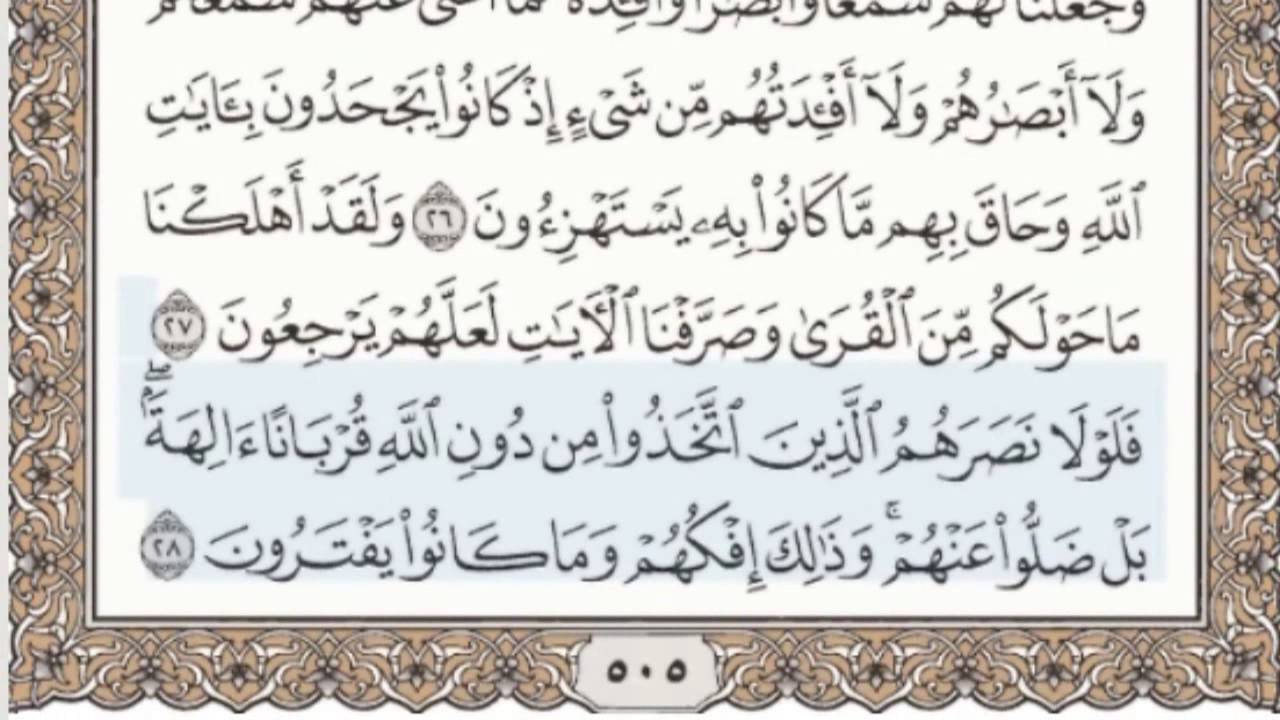 وَجَعَلْنَا لَهُمْ سَمْعًا وَأَبْصَـٰرًا وَأَفْـِٔدَةً فَمَآ أَغْنَىٰ عَنْهُمْ سَمْعُهُمْ
وَلَآ أَبْصَـٰرُهُمْ وَلَآ أَفْـِٔدَتُهُم مِّن شَىْءٍ إِذْ كَانُوا۟ يَجْحَدُونَ بِـَٔايَـٰتِ
ٱللَّهِ وَحَاقَ بِهِم مَّا كَانُوا۟ بِهِۦ يَسْتَهْزِءُونَ ٢٦ وَلَقَدْ أَهْلَكْنَا
مَا حَوْلَكُم مِّنَ ٱلْقُرَىٰ وَصَرَّفْنَا ٱلْـَٔايَـٰتِ لَعَلَّهُمْ يَرْجِعُونَ ٢٧
فَلَوْلَا نَصَرَهُمُ ٱلَّذِينَ ٱتَّخَذُوا۟ مِن دُونِ ٱللَّهِ قُرْبَانًا ءَالِهَةًۢ ۖ
بَلْ ضَلُّوا۟ عَنْهُمْ ۚ وَذَٰلِكَ إِفْكُهُمْ وَمَا كَانُوا۟ يَفْتَرُونَ ٢٨
٥٠٥